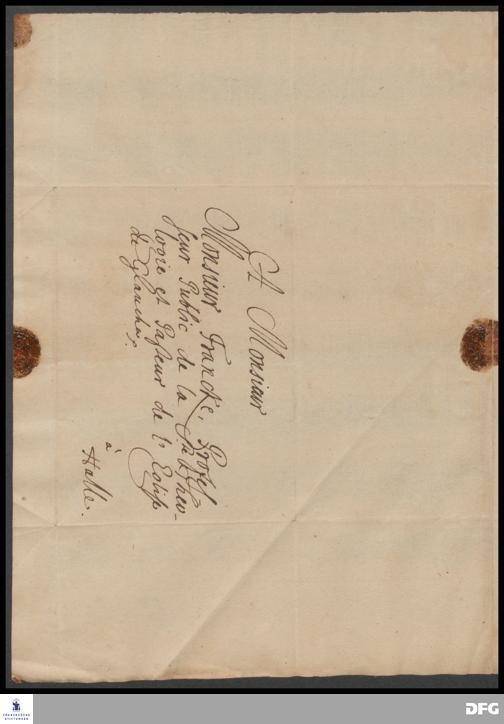 A Monsieur
Monsieur Francke, Profes
seur Public de la Ste Theo-
logie et Pasteur de l'Eglise
de Glaucha.
à
Halle.
FRANCKESCHE
STIFTUNGEN
DFG